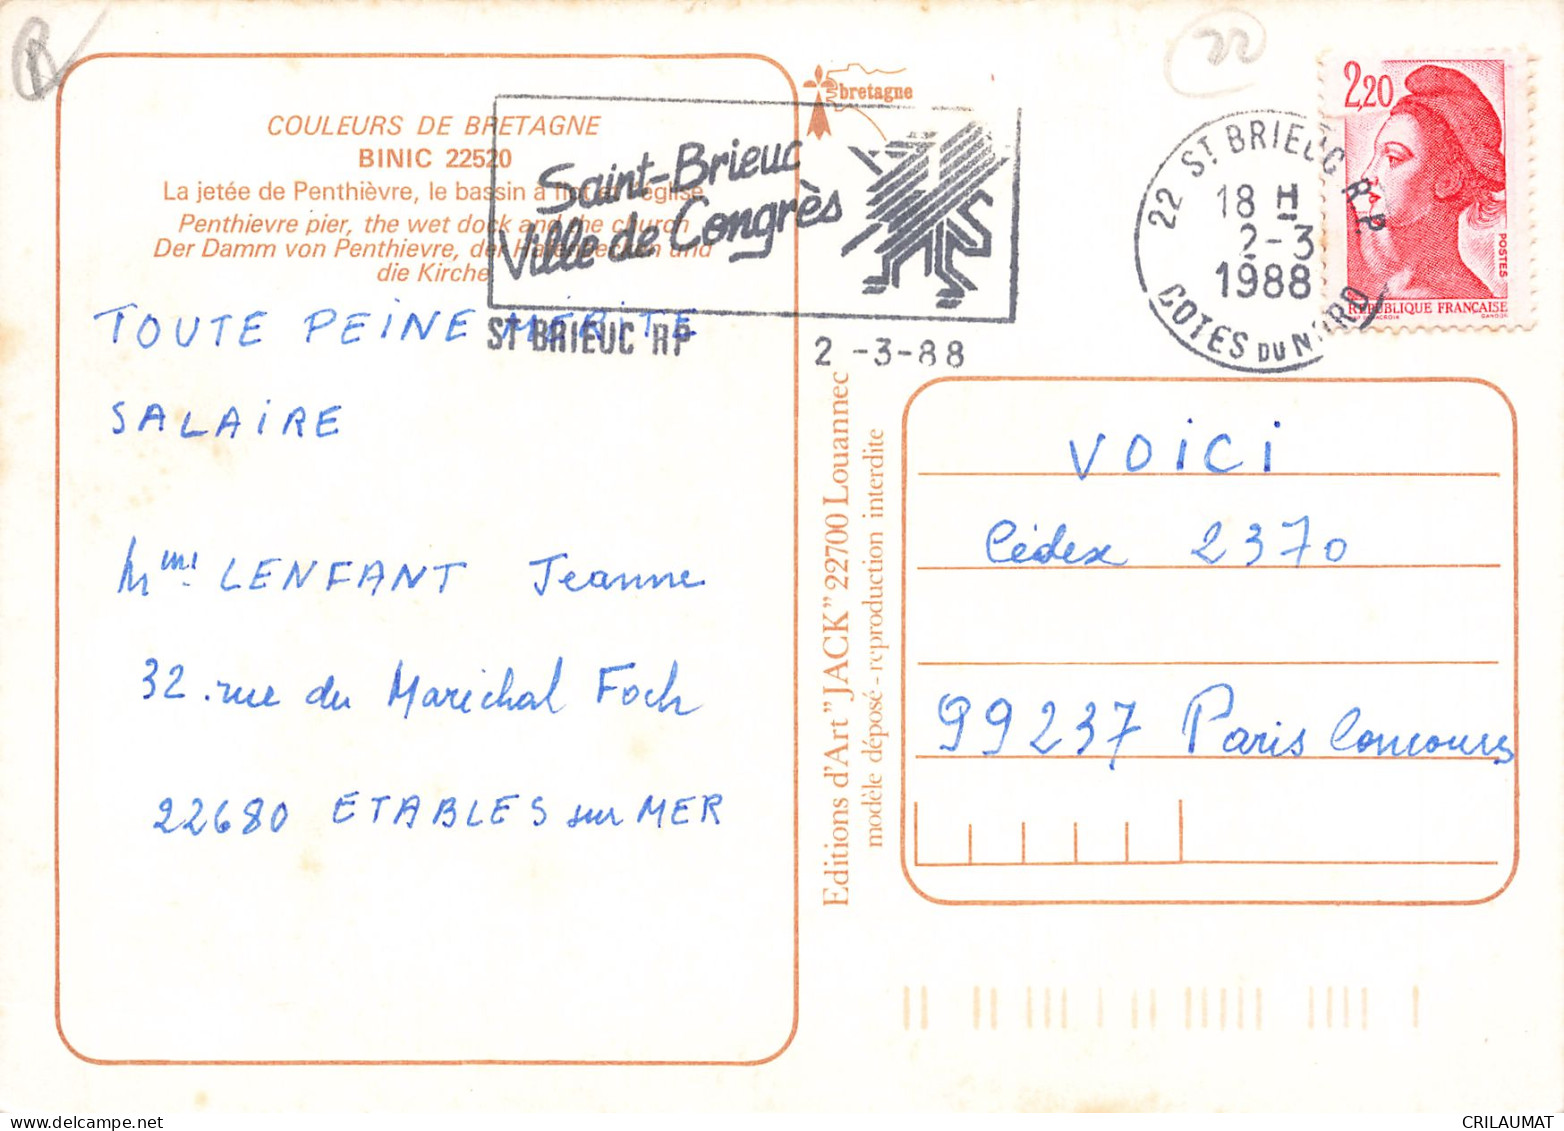 22
COULEURS DE BRETAGNE
BINIC 22520
La jetée de Penthièvre, le bassin à flot et l'église
Penthievre pier, the wet dock and the church
Der Damm von Penthievre, der Hafenbecken und
die Kirche
bretagne
Saint-Brieuc
Ville de Congrès
ST BRIEUC RP
2 -3-88
22 ST BRIEUC R.P.
18 H
2-3
1988
COTES DU NORD
2,20
POSTES
REPUBLIQUE FRANÇAISE
TOUTE PEINE MÉRITE
SALAIRE
Mme LENFANT Jeanne
32 rue du Maréchal Foch
22680 ETABLES sur MER
Editions d'Art "JACK" 22700 Louannec
modèle déposé - reproduction interdite
VOICI
Cédex 2370
99237 Paris Concours
CRILAUMAT